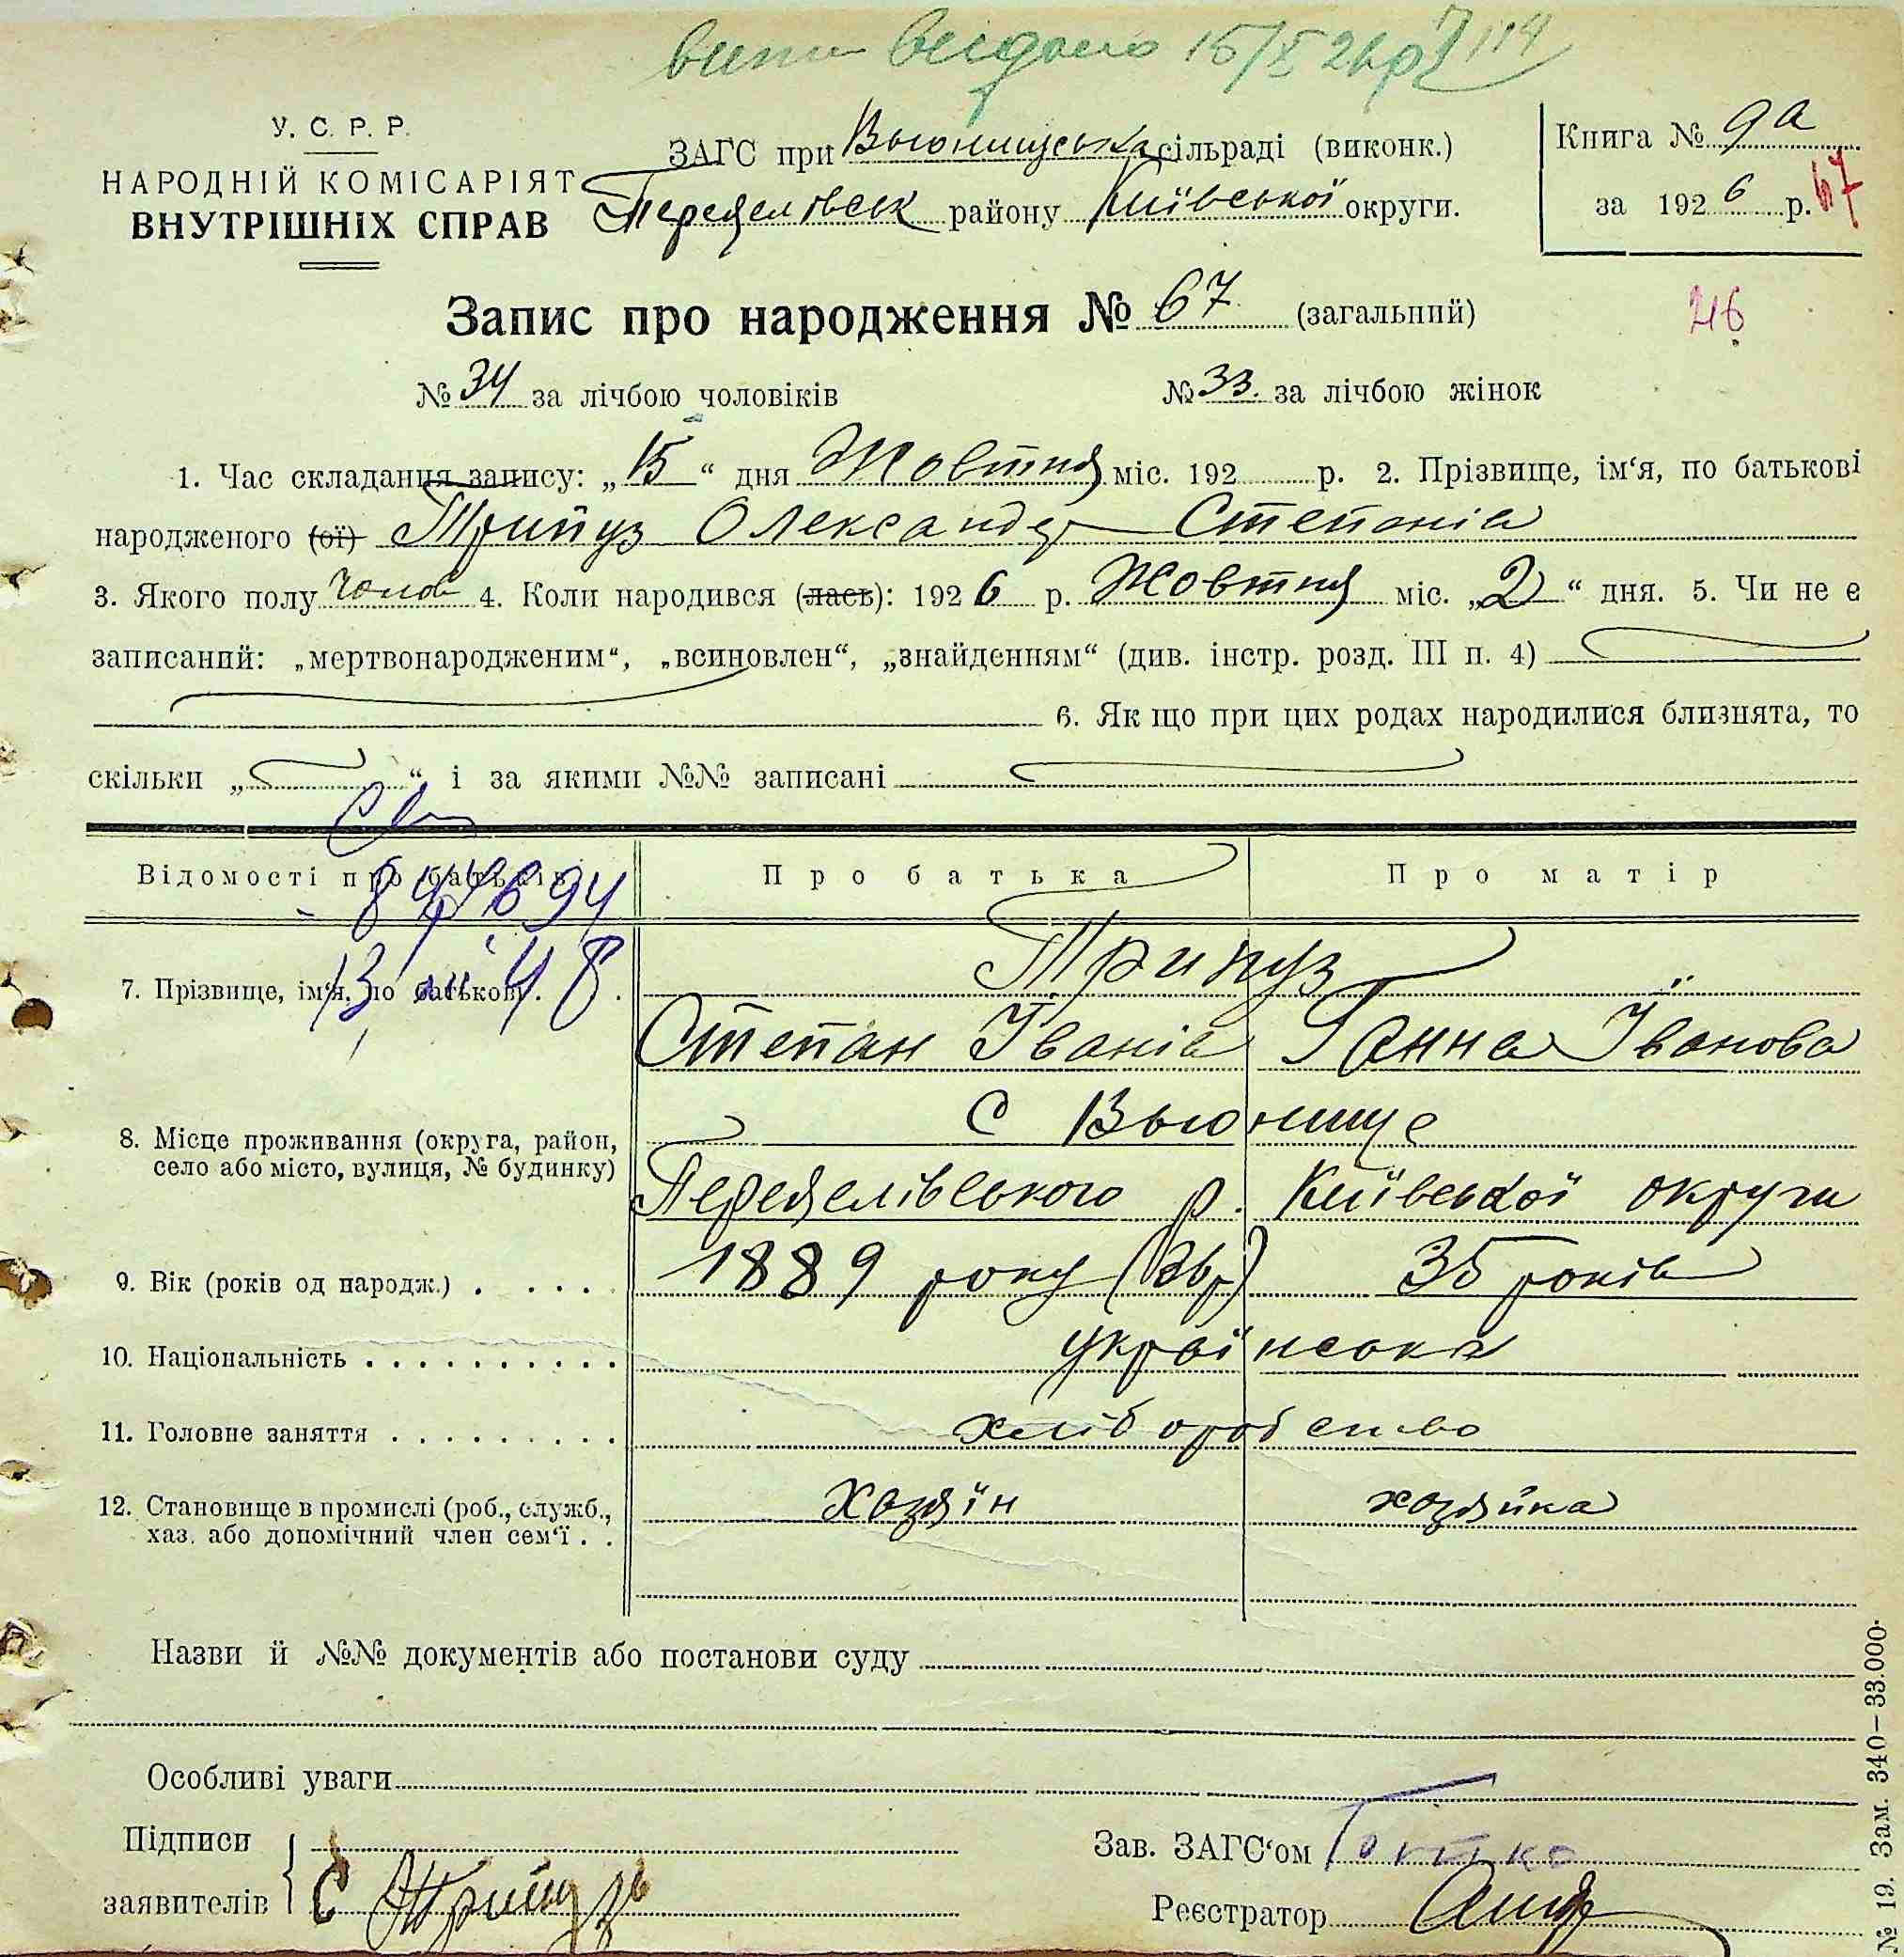 видано 15/X 26 р
У. С. Р. Р.
НАРОДНІЙ КОМІСАРІЯТ
ВНУТРІШНІХ СПРАВ
ЗАГС при Вьюнищська сільраді (виконк.)
Переяслівськ району Київської округи.
Книга № 9а
за 1926 р. 67
Запис про народження № 67 (загальний)
№ 34 за лічбою чоловіків № 33. за лічбою жінок
1. Час складання запису: „15“ дня Жовтня міс. 192 р. 2. Прізвище, ім‘я, по батькові
народженого (ої) Трипуз Олександр Степанів
3. Якого полу Чолов 4. Коли народився (лась): 1926 р. Жовтня міс. „2“ дня. 5. Чи не є
записаний: „мертвонародженим“, „всиновлен“, „знайденням“ (див. інстр. розд. III п. 4)
6. Як що при цих родах народилися близнята, то
скільки „ “ і за якими №№ записані
Відомості про батьків Про батька Про матір
13 48
7. Прізвище, ім‘я, по батькові . . Трипуз
Степан Іванів Ганна Їванова
8. Місце проживання (округа, район,
село або місто, вулиця, № будинку)
с Вьюнище
Переяслівського р. Київської округи
9. Вік (років од народж.) . . . . . 1889 року (36 р) 35 років
10. Національність . . . . . . . . . . українська
11. Головне заняття . . . . . . . . . хліборобство
12. Становище в промислі (роб., служб.,
хаз. або допомічний член сем‘ї . .
Хозяїн хозяйка
Назви й №№ документів або постанови суду
Особливі уваги
Підписи
заявителів С Трипуз
Зав. ЗАГС‘ом
Реєстратор
№ 19. Зам. 340—33.000.